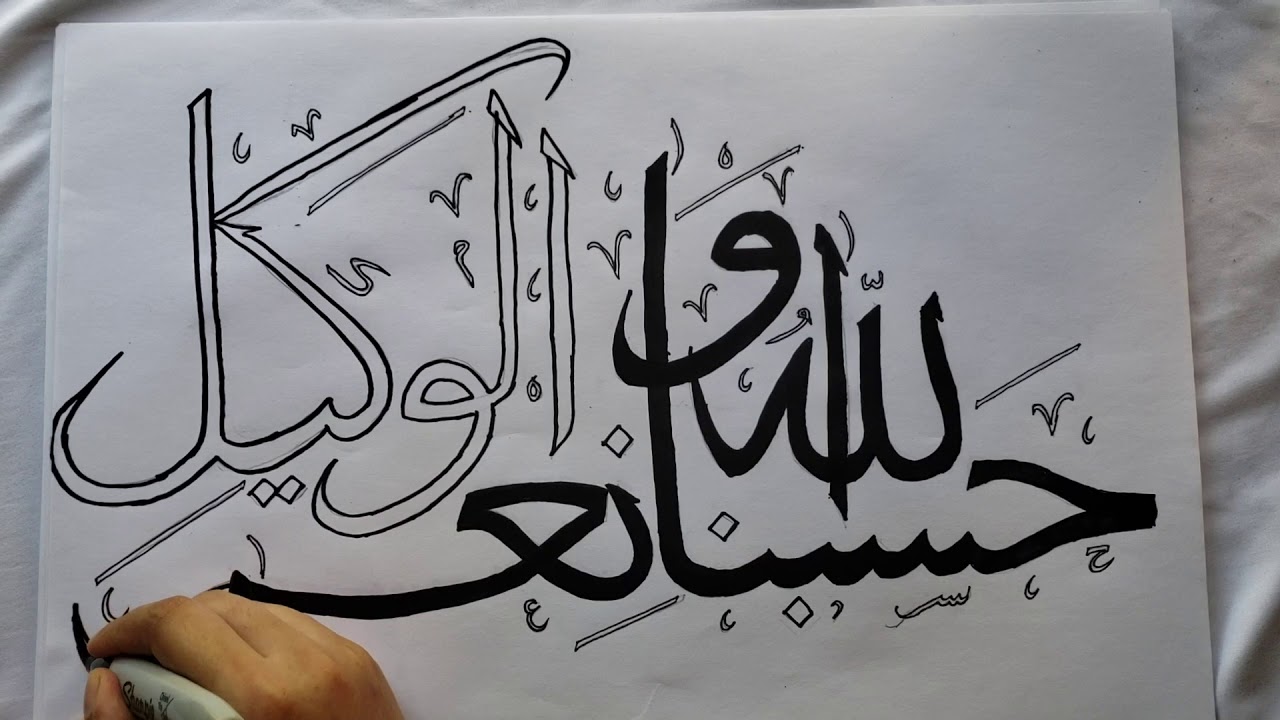 حسبنا الله ونعم الوكيل
Sharpie